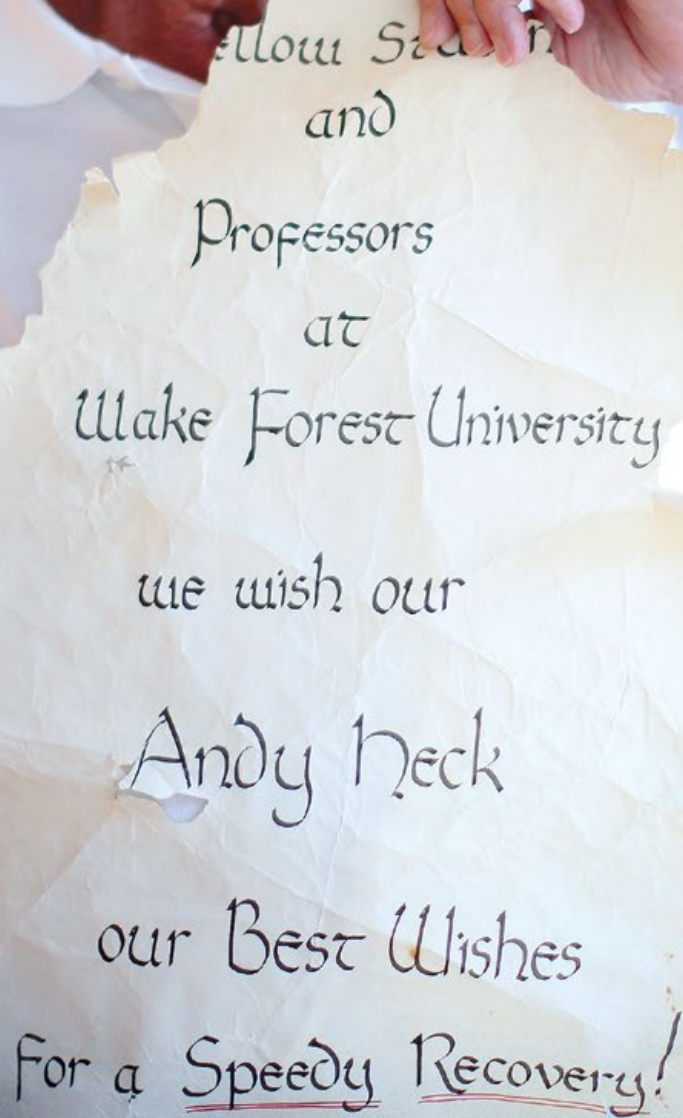 and
Professors
at
Wake Forest University
we wish our
Andy Heck
our Best Wishes
For a Speedy Recovery!